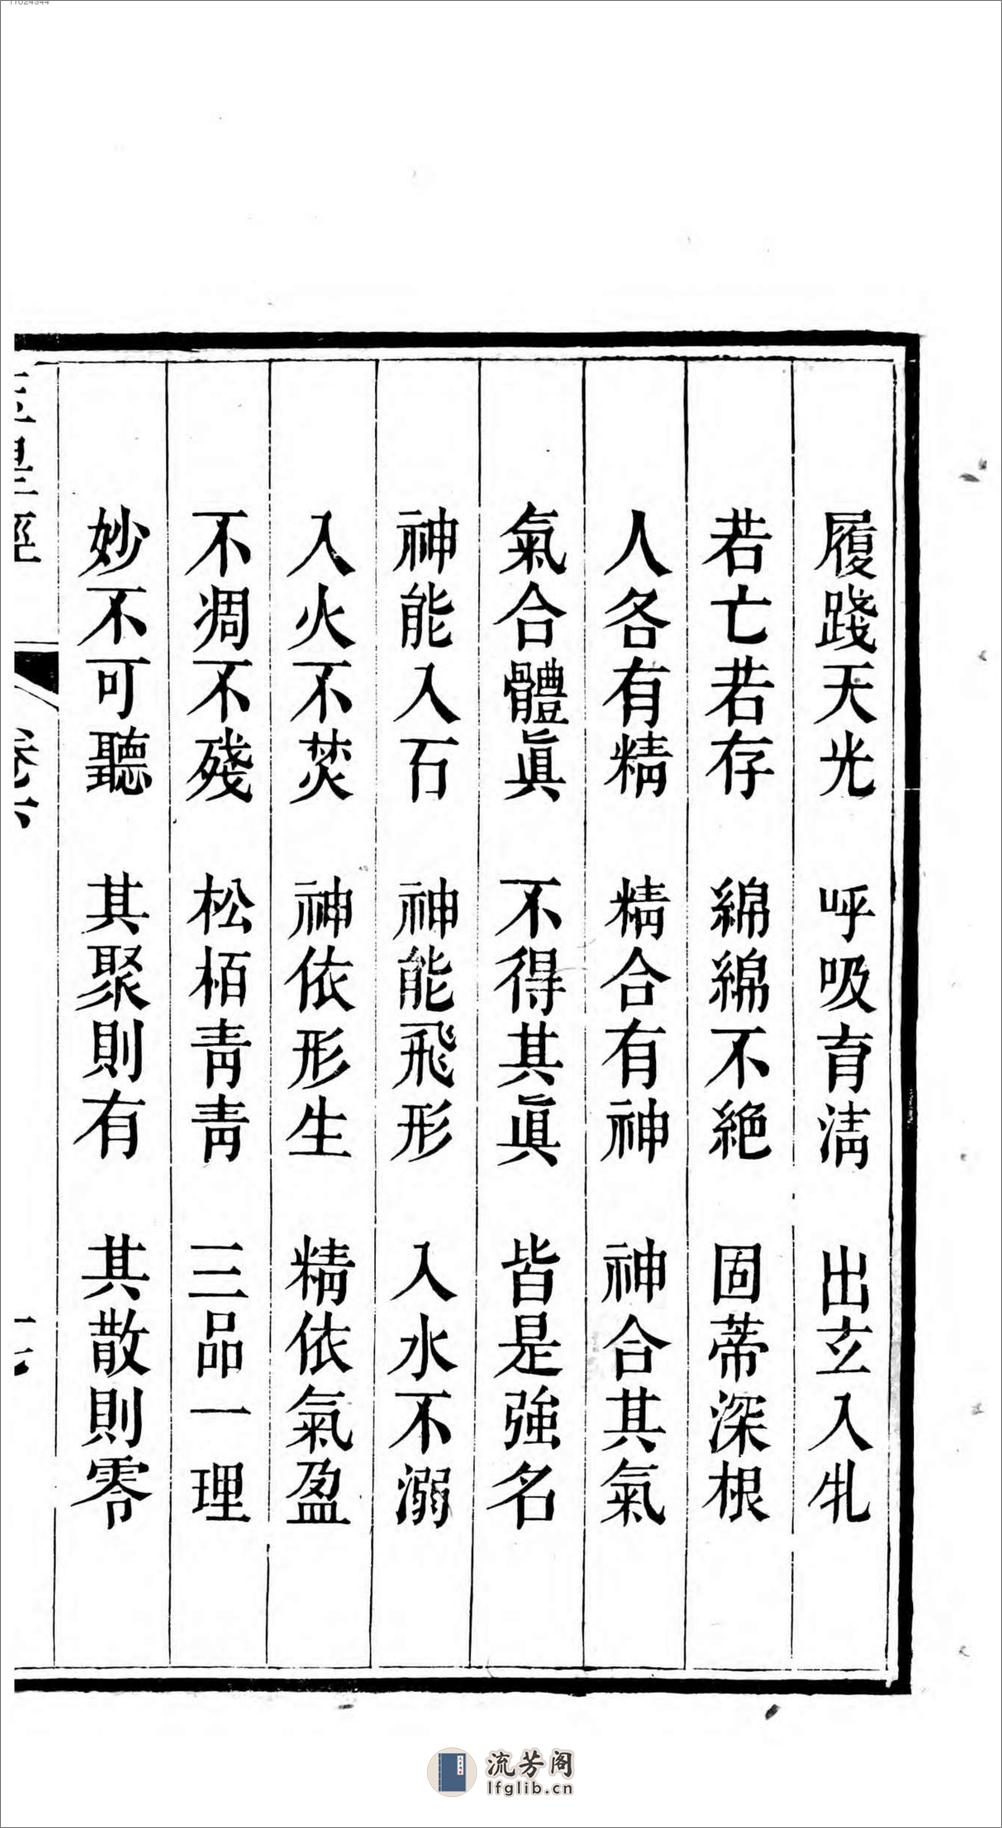 履踐天光　呼吸育淸　出玄入牝
若亡若存　綿綿不絶　固蒂深根
人各有精　精合有神　神合其氣
氣合體眞　不得其眞　皆是強名
神能入石　神能飛形　入水不溺
入火不焚　神依形生　精依氣盈
不凋不殘　松栢靑靑　三品一理
妙不可聽　其聚則有　其散則零
皇經
卷六
流芳阁
lfglib.cn